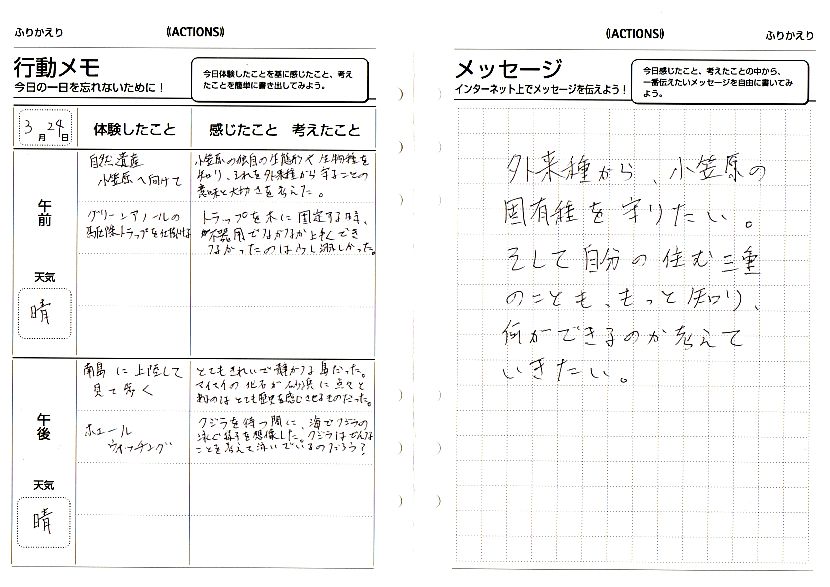 ふりかえり
《ACTIONS》
行動メモ
今日の一日を忘れないために！
今日体験したことを基に感じたこと、考え
たことを簡単に書き出してみよう。
3月24日
体験したこと
感じたこと 考えたこと
午前
天気
晴
自然遺産
小笠原へ向けて
小笠原の独自の生態形や生物種を
知り、それを外来種から守ることの
意味と大切さを考えた。
グリーンアノールの
トラップを仕掛ける
トラップを木に固定する時、
不器用でなかなか上手くでき
なかったのは少し悔しかった。
午後
天気
晴
南島に上陸して
見て歩く
とてもきれいで静かな島だった。
マイマイの化石が砂浜に点々と
あるのはとても歴史を感じさせるものだった。
ホエール
ウォッチング
クジラを待つ間に、海でクジラの
泳ぐ様子を想像した。クジラはどんな
ことを考えて泳いでいるのだろう？
《ACTIONS》
ふりかえり
メッセージ
インターネット上でメッセージを伝えよう！
今日感じたこと、考えたことの中から、
一番伝えたいメッセージを自由に書いてみ
よう。
外来種から、小笠原の
固有種を守りたい。
そして自分の住む三重
のことも、もっと知り、
何ができるのか考えて
いきたい。